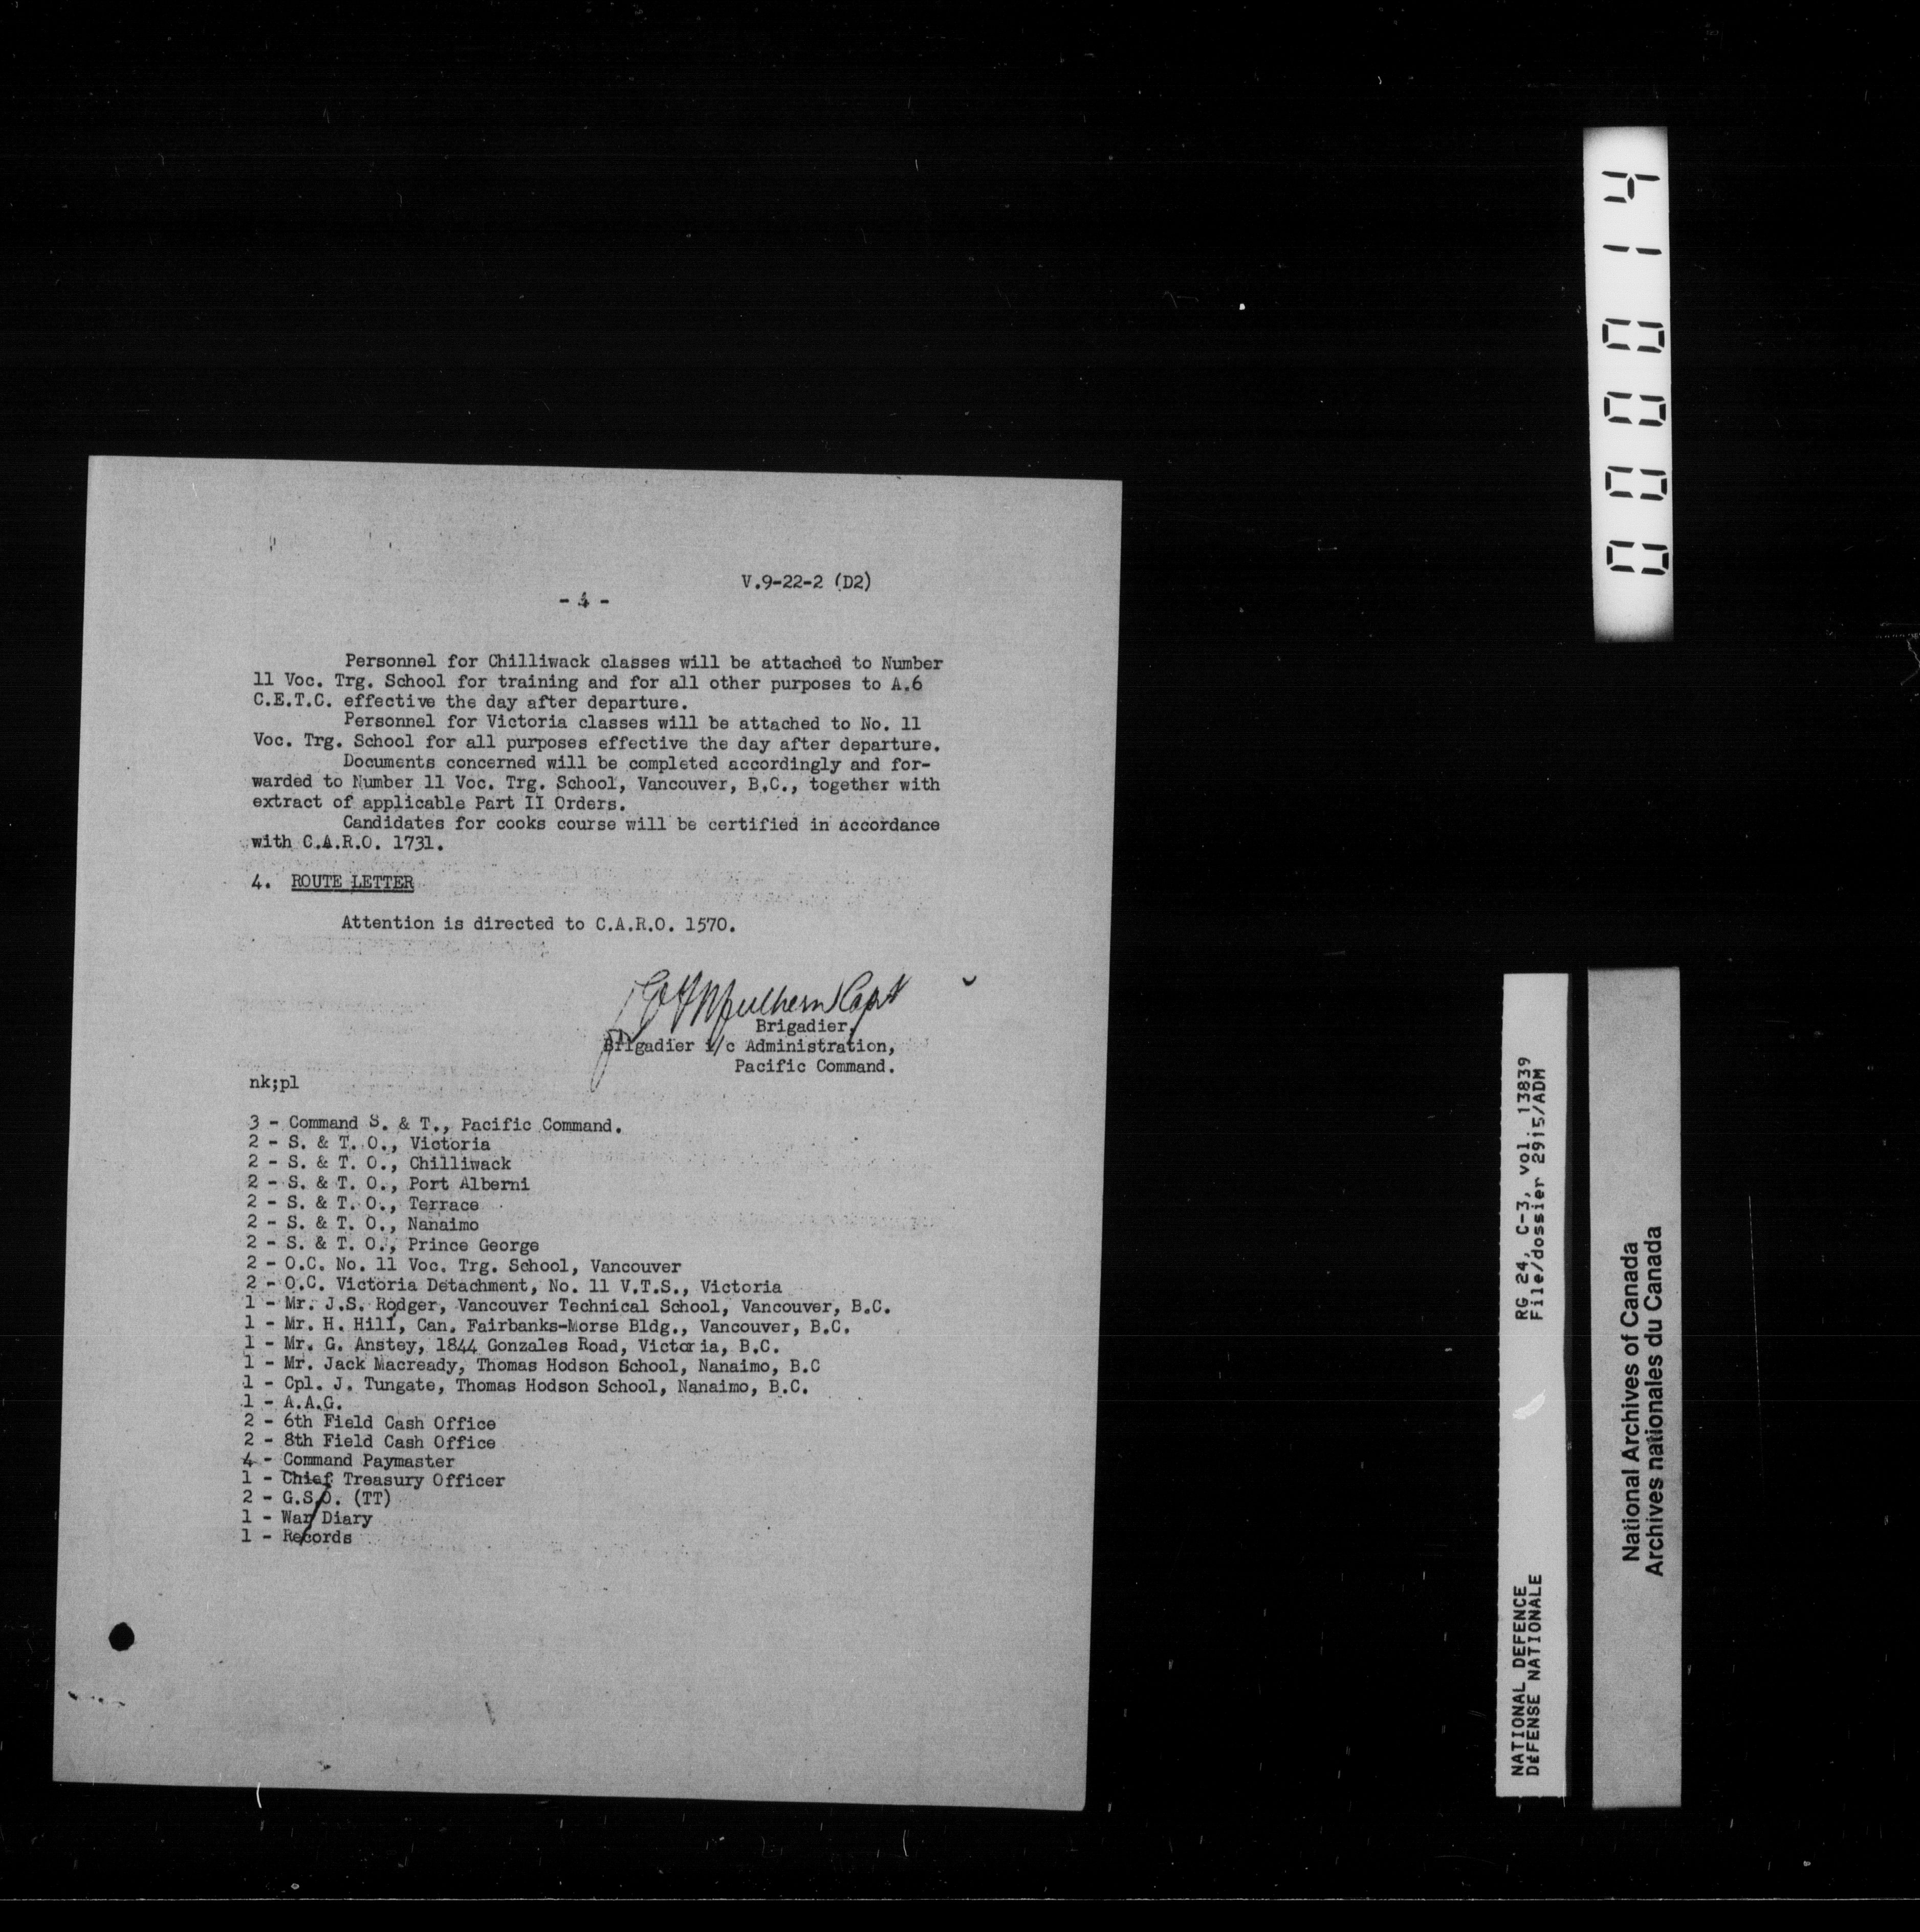 V.9-22-2 (D2)
- 4 -
Personnel for Chilliwack classes will be attached to Number
11 Voc. Trg. School for training and for all other purposes to A.6
C.E.T.C. effective the day after departure.
Personnel for Victoria classes will be attached to No. 11
Voc. Trg. School for all purposes effective the day after departure.
Documents concerned will be completed accordingly and for-
warded to Number 11 Voc. Trg. School, Vancouver, B.C., together with
extract of applicable Part II Orders.
Candidates for cooks course will be certified in accordance
with C.A.R.O. 1731.
4. ROUTE LETTER
Attention is directed to C.A.R.O. 1570.
Mulhern Capt
Brigadier,
Brigadier i/c Administration,
Pacific Command.
nk;pl
3 - Command S. & T., Pacific Command.
2 - S. & T. O., Victoria
2 - S. & T. O., Chilliwack
2 - S. & T. O., Port Alberni
2 - S. & T. O., Terrace
2 - S. & T. O., Nanaimo
2 - S. & T. O., Prince George
2 - O.C. No. 11 Voc. Trg. School, Vancouver
2 - O.C. Victoria Detachment, No. 11 V.T.S., Victoria
1 - Mr. J.S. Rodger, Vancouver Technical School, Vancouver, B.C.
1 - Mr. H. Hill, Can. Fairbanks-Morse Bldg., Vancouver, B.C.
1 - Mr. G. Anstey, 1844 Gonzales Road, Victoria, B.C.
1 - Mr. Jack Macready, Thomas Hodson School, Nanaimo, B.C
1 - Cpl. J. Tungate, Thomas Hodson School, Nanaimo, B.C.
1 - A.A.G.
2 - 6th Field Cash Office
2 - 8th Field Cash Office
4 - Command Paymaster
1 - Chief Treasury Officer
2 - G.S.O. (TT)
1 - War Diary
1 - Records
000014
RG 24, C-3, vol. 13839
File/dossier 2915/ADM
NATIONAL DEFENCE
DÉFENSE NATIONALE
National Archives of Canada
Archives nationales du Canada